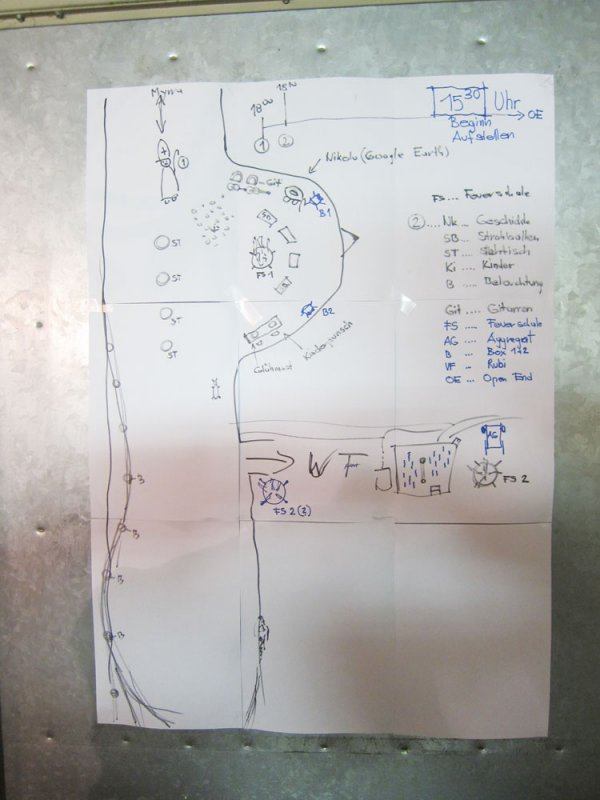 18⁰⁰
① ②
15³⁰ Uhr
Beginn
Aufstellen
→ OE
Nikolo (Google Earth)
①
Git
B1
FS 1
ST
ST
ST
ST
B2
Kinderpunsch
Glühmost
FS.... Feuerschale
②.... Nk...
SB...
ST.... Stehtisch
Ki.... Kinder
B... Beleuchtung
Git.... Gitarren
FS.... Feuerschale
AG... Aggregat
B... Box 1+2
VF... Rubi
OE... Open End
AG
FS 2
FS 2 (3)
B
B
B
B